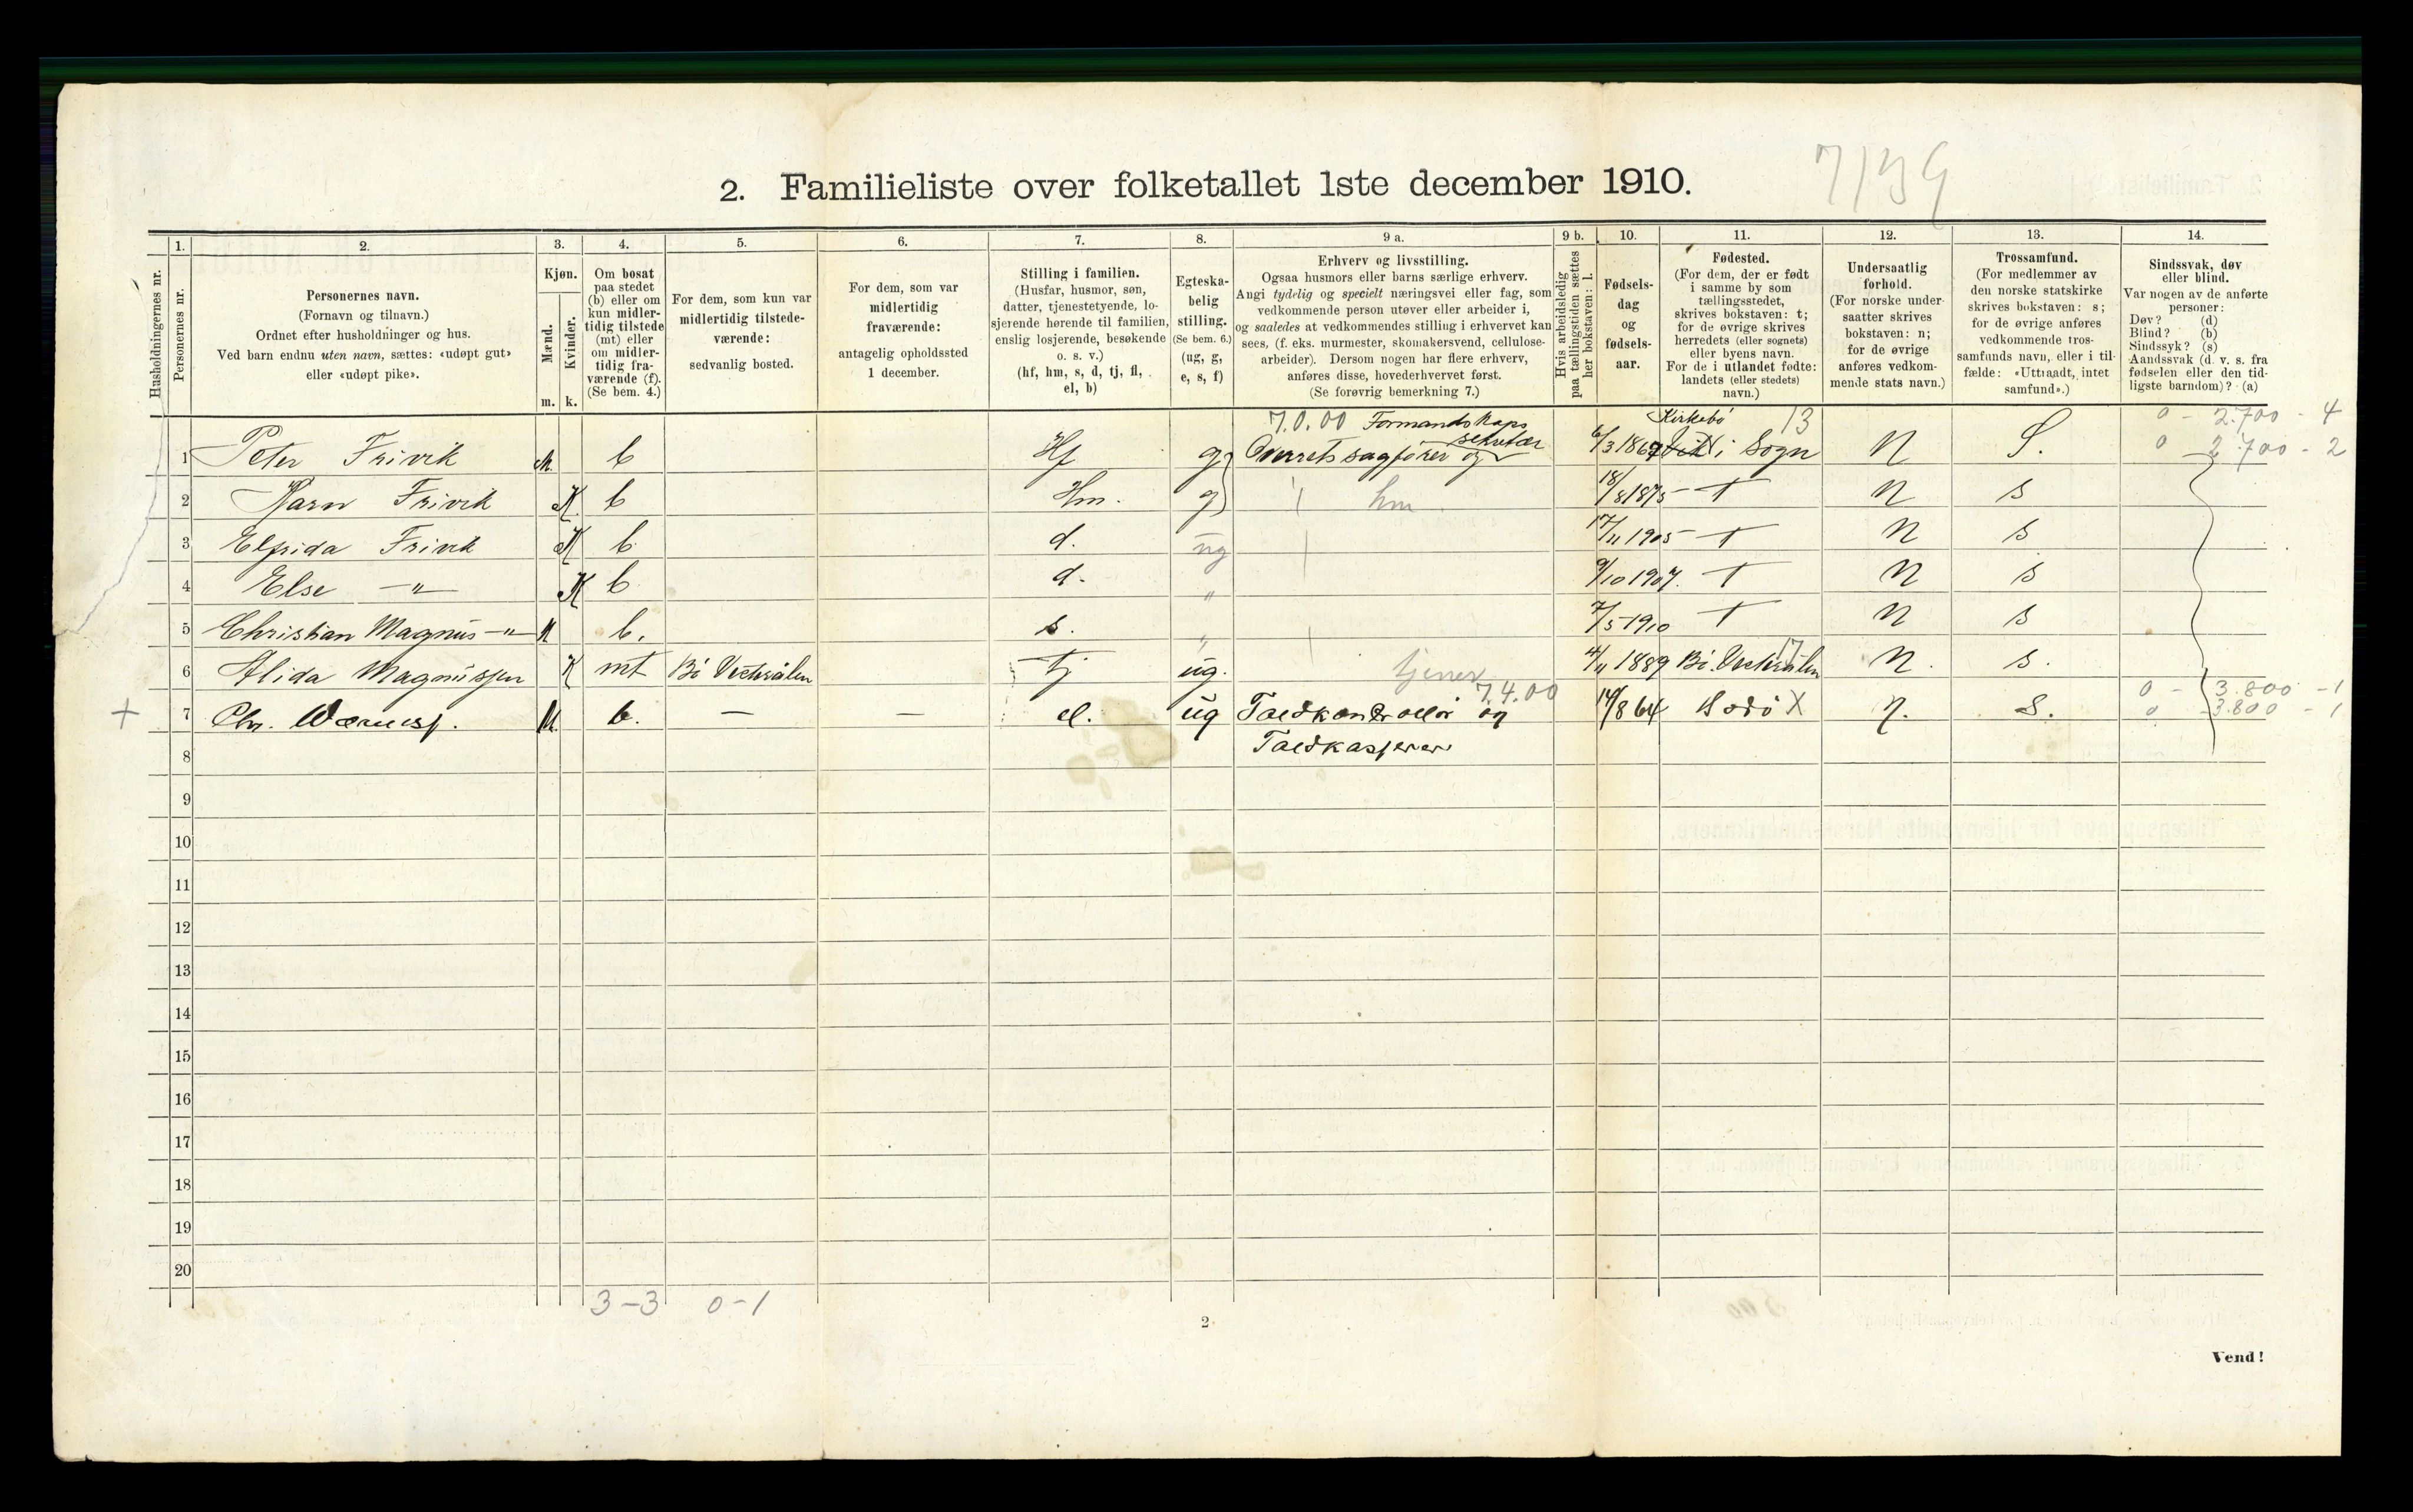 7139
2. Familieliste over folketallet 1ste december 1910.
1. 2. 3. 4. 5. 6. 7. 8. 9 a. 9 b. 10. 11. 12. 13. 14.
Husholdningernes nr.
Personernes nr.
Personernes navn.
(Fornavn og tilnavn.)
Ordnet efter husholdninger og hus.
Ved barn endnu uten navn, sættes: «udøpt gut»
eller «udøpt pike».
Kjøn.
Mænd.
Kvinder.
m. k.
Om bosat
paa stedet
(b) eller om
kun midler-
tidig tilstede
(mt) eller
om midler-
tidig fra-
værende (f).
(Se bem. 4.)
For dem, som kun var
midlertidig tilstede-
værende:
sedvanlig bosted.
For dem, som var
midlertidig
fraværende:
antagelig opholdssted
1 december.
Stilling i familien.
(Husfar, husmor, søn,
datter, tjenestetyende, lo-
sjerende hørende til familien,
enslig losjerende, besøkende
o. s. v.)
(hf, hm, s, d, tj, fl,
el, b)
Egteska-
belig
stilling.
(Se bem. 6.)
(ug, g,
e, s, f)
Erhverv og livsstilling.
Ogsaa husmors eller barns særlige erhverv.
Angi tydelig og specielt næringsvei eller fag, som
vedkommende person utøver eller arbeider i,
og saaledes at vedkommendes stilling i erhvervet kan
sees, (f. eks. murmester, skomakersvend, cellulose-
arbeider). Dersom nogen har flere erhverv,
anføres disse, hovederhvervet først.
(Se forøvrig bemerkning 7.)
Hvis arbeidsledig
paa tællingstiden sættes
her bokstaven: l.
Fødsels-
dag
og
fødsels-
aar.
Fødested.
(For dem, der er født
i samme by som
tællingsstedet,
skrives bokstaven: t;
for de øvrige skrives
herredets (eller sognets)
eller byens navn.
For de i utlandet fødte:
landets (eller stedets)
navn.)
Undersaatlig
forhold.
(For norske under-
saatter skrives
bokstaven: n;
for de øvrige
anføres vedkom-
mende stats navn.)
Trossamfund.
(For medlemmer av
den norske statskirke
skrives bokstaven: s;
for de øvrige anføres
vedkommende tros-
samfunds navn, eller i til-
fælde: «Uttraadt, intet
samfund».)
Sindssvak, døv
eller blind.
Var nogen av de anførte
personer:
Døv? (d)
Blind? (b)
Sindssyk? (s)
Aandssvak (d. v. s. fra
fødselen eller den tid-
ligste barndom)? (a)
7.0.00 Formandskaps Kirkebø 13 0 - 2.700 - 4
1 Peter Frivik M b Hf g Overretssagfører og sekretær 6/3 1867 i Sogn N S. 0 2.700 - 2
2 Karn Frivik K b Hm. g hm 18/8 1875 - T N s
3 Elfrida Frivik K b d. ug 17/11 1905 - T N s
4 Else - " K b d. " 9/10 1907. T N s
5 Christian Magnus - " M b. s. " 7/5 1910 T N s
6 Alida Magnussen K mt Bö Vesterålen tj ug. tjener 4/11 1889 Bö. Vesterålen 17 N. s.
7.4.00 0 - 3.800 - 1
+ 7 Chr. M. b. — — el. ug Toldkontrollör og 14/8 64 Bodö X n. S. 0 3.800 - 1
Toldkasserer
8
9
10
11
12
13
14
15
16
17
18
19
20
3-3 0-1
2
Vend!